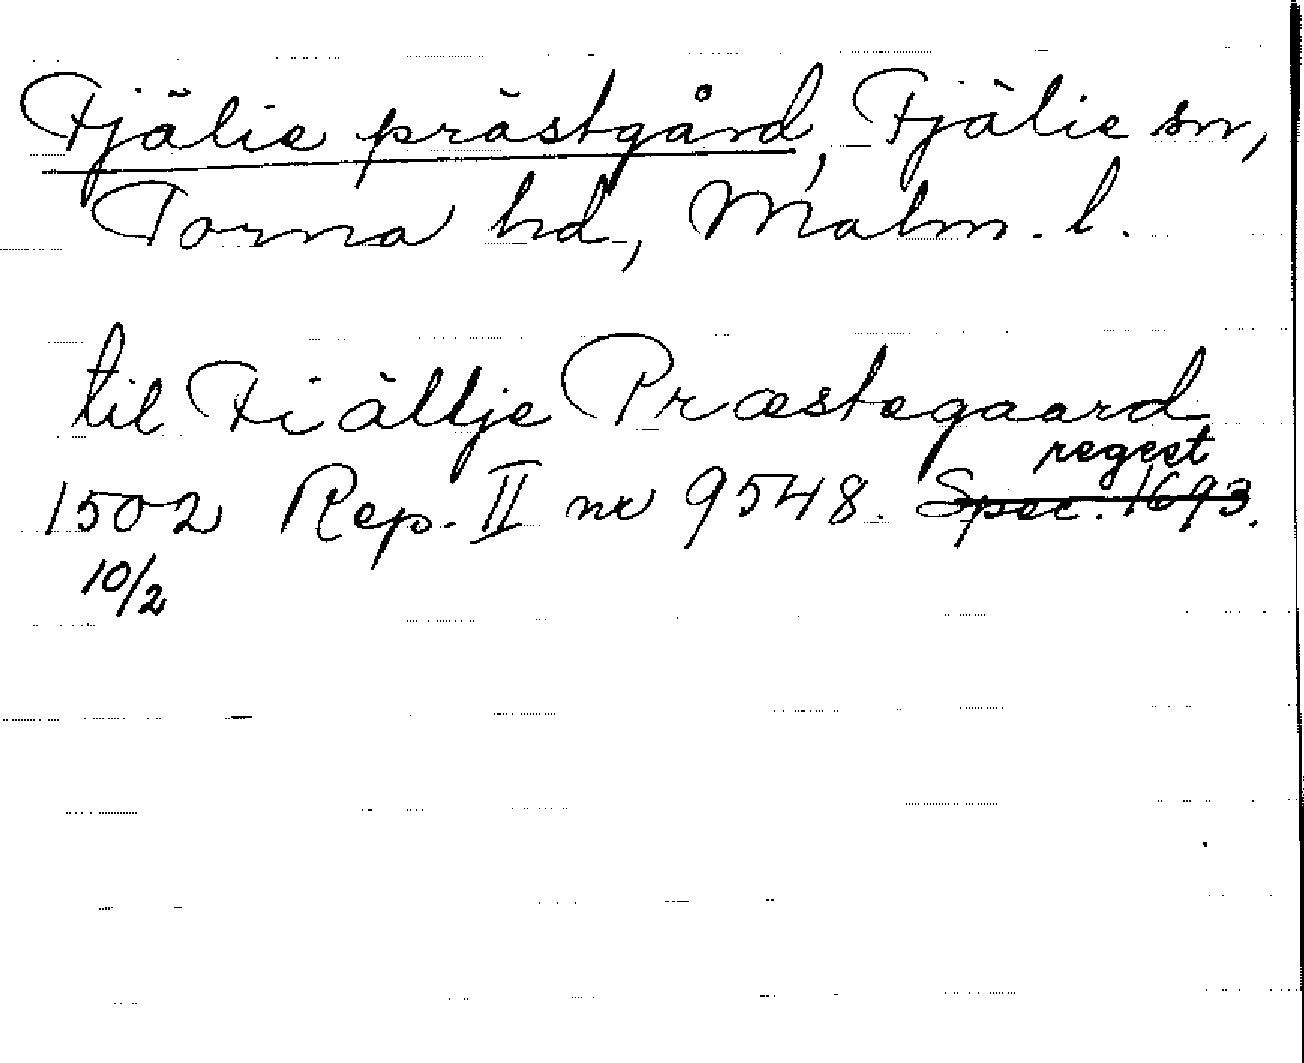 Fjälie prästgård, Fjälie sn,
Torna hd, Malm. l.
til Fiällje Præstegaard
regest
1502 Rep. II nr 9548. Spec. 1693.
10/2